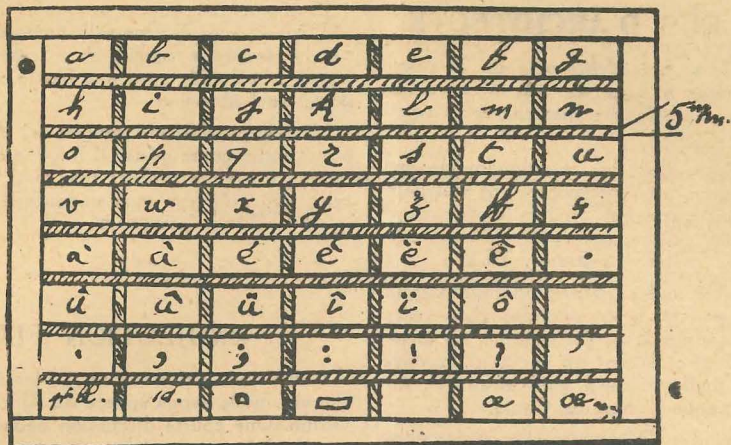 a b c d e f g
h i j k l m n
5 m/m.
o p q r s t u
v w x y z ff ç
à â é è ë ê .
ù û ü î ï ô
' , ; : ! ? ’
id. æ œ